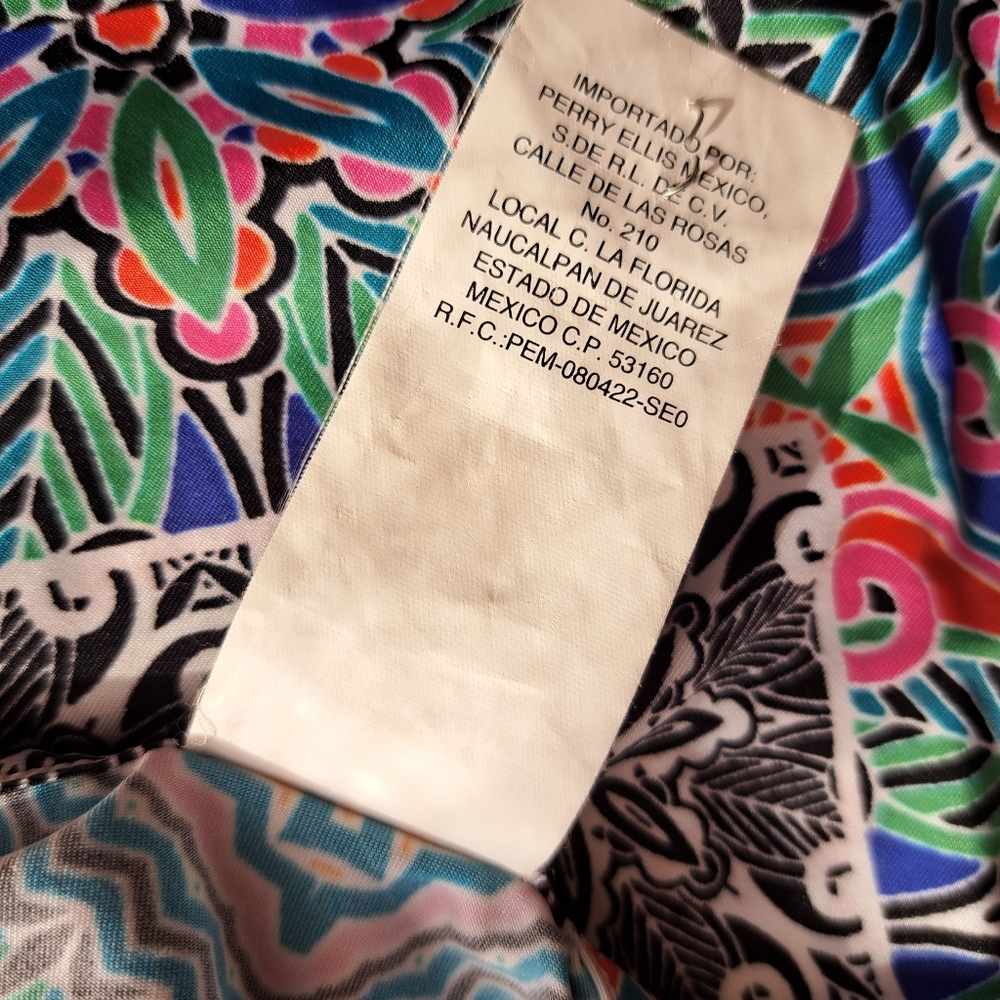 IMPORTADO POR:
PERRY ELLIS MEXICO,
S.DE R.L. DE C.V.
CALLE DE LAS ROSAS
No. 210
LOCAL C. LA FLORIDA
NAUCALPAN DE JUAREZ
ESTADO DE MEXICO
MEXICO C.P. 53160
R.F.C.:PEM-080422-SE0